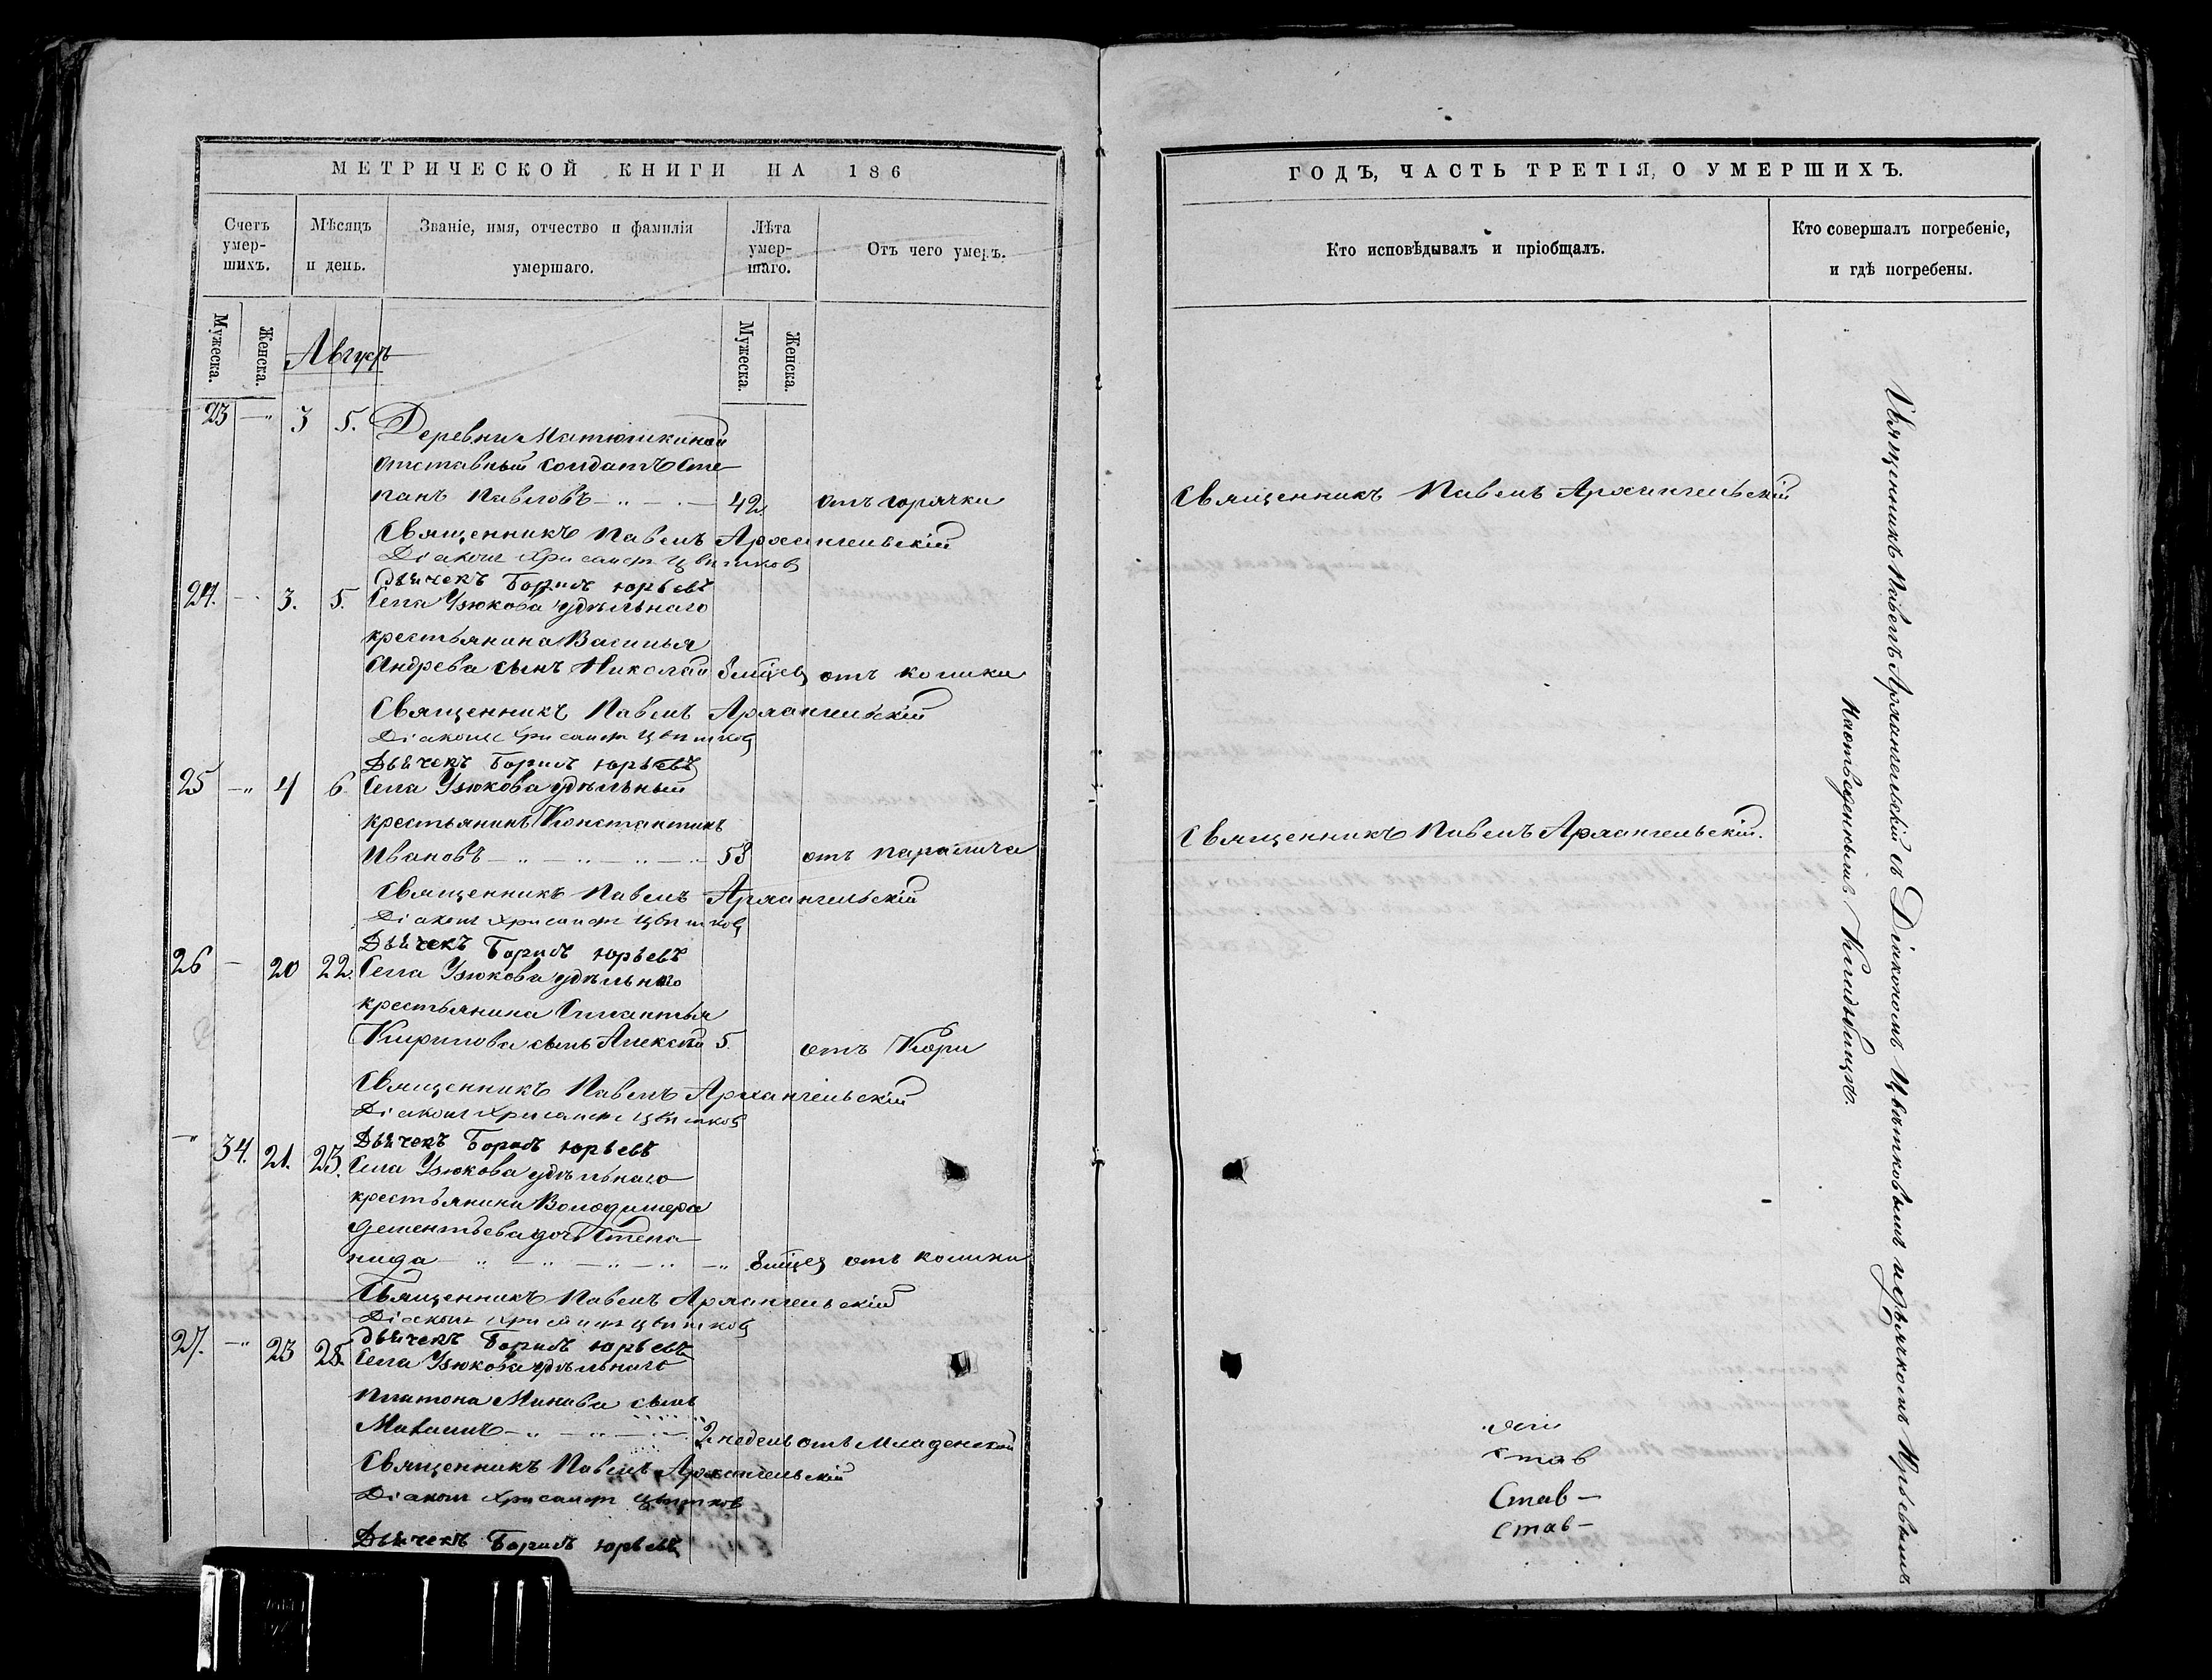 МЕТРИЧЕСКОЙ КНИГИ НА 186
Счетъ умер-шихъ.
Мѣсяцъ и день.
Званіе, имя, отчество и фамилія умершаго.
Лѣта умер-шаго.
Отъ чего умеръ.
Мужеска.
Женска.
Мужеска.
Женска.
Августъ
23 —„ 3 5. Деревни Матюшкиной
отставный солдатъ Сте
панъ Павловъ 42. отъ горячки
Священникъ Павелъ Архангельскій
Діаконъ Хрисанфъ Цвѣтковъ
Дьячекъ Борисъ Юрьевъ
24. — 3. 5. Села Узюкова удѣльнаго
крестьянина Василья
Андрева сынъ Николай отъ колики
Священникъ Павелъ Архангельскій
Діаконъ Хрисанфъ Цвѣтковъ
Дьячекъ Борисъ Юрьевъ
25 —„ 4 6 Села Узюкова удѣльный
крестьянинъ Константинъ
Ивановъ 53 отъ паралича
Священникъ Павелъ Архангельскій
Діаконъ Хрисанфъ Цвѣтковъ
Дьячекъ Борисъ Юрьевъ
26 — 20 22. Села Узюкова удѣльнаго
крестьянина
Кирилова сынъ 5. отъ Кори
Священникъ Павелъ Архангельскій
Діаконъ Хрисанфъ Цвѣтковъ
Дьячекъ Борисъ Юрьевъ
—„ 34. 21. 23. Села Узюкова удѣльнаго
крестьянина Володимера
Дементьева дочь Степа
нида отъ колики
Священникъ Павелъ Архангельскій
Діаконъ Хрисанфъ Цвѣтковъ
Дьячекъ Борисъ Юрьевъ
27. —„ 23 25. Села Узюкова удѣльнаго
Платона Минава сынъ
2 недель отъ Младенской
Священникъ Павелъ Архангельскій
Діаконъ Хрисанфъ Цвѣтковъ
Дьячекъ Борисъ Юрьевъ
ГОДЪ, ЧАСТЬ ТРЕТІЯ, О УМЕРШИХЪ.
Кто исповѣдывалъ и пріобщалъ.
Кто совершалъ погребеніе, и гдѣ погребены.
Священникъ Павелъ Архангельскій
Священникъ Павелъ Архангельскій.
Став
Став—
Став—
Священникъ Павелъ Архангельскій съ Діакономъ Цвѣтковымъ и дьячкомъ Юрьевымъ
На отведенномъ Кладъбищѣ.